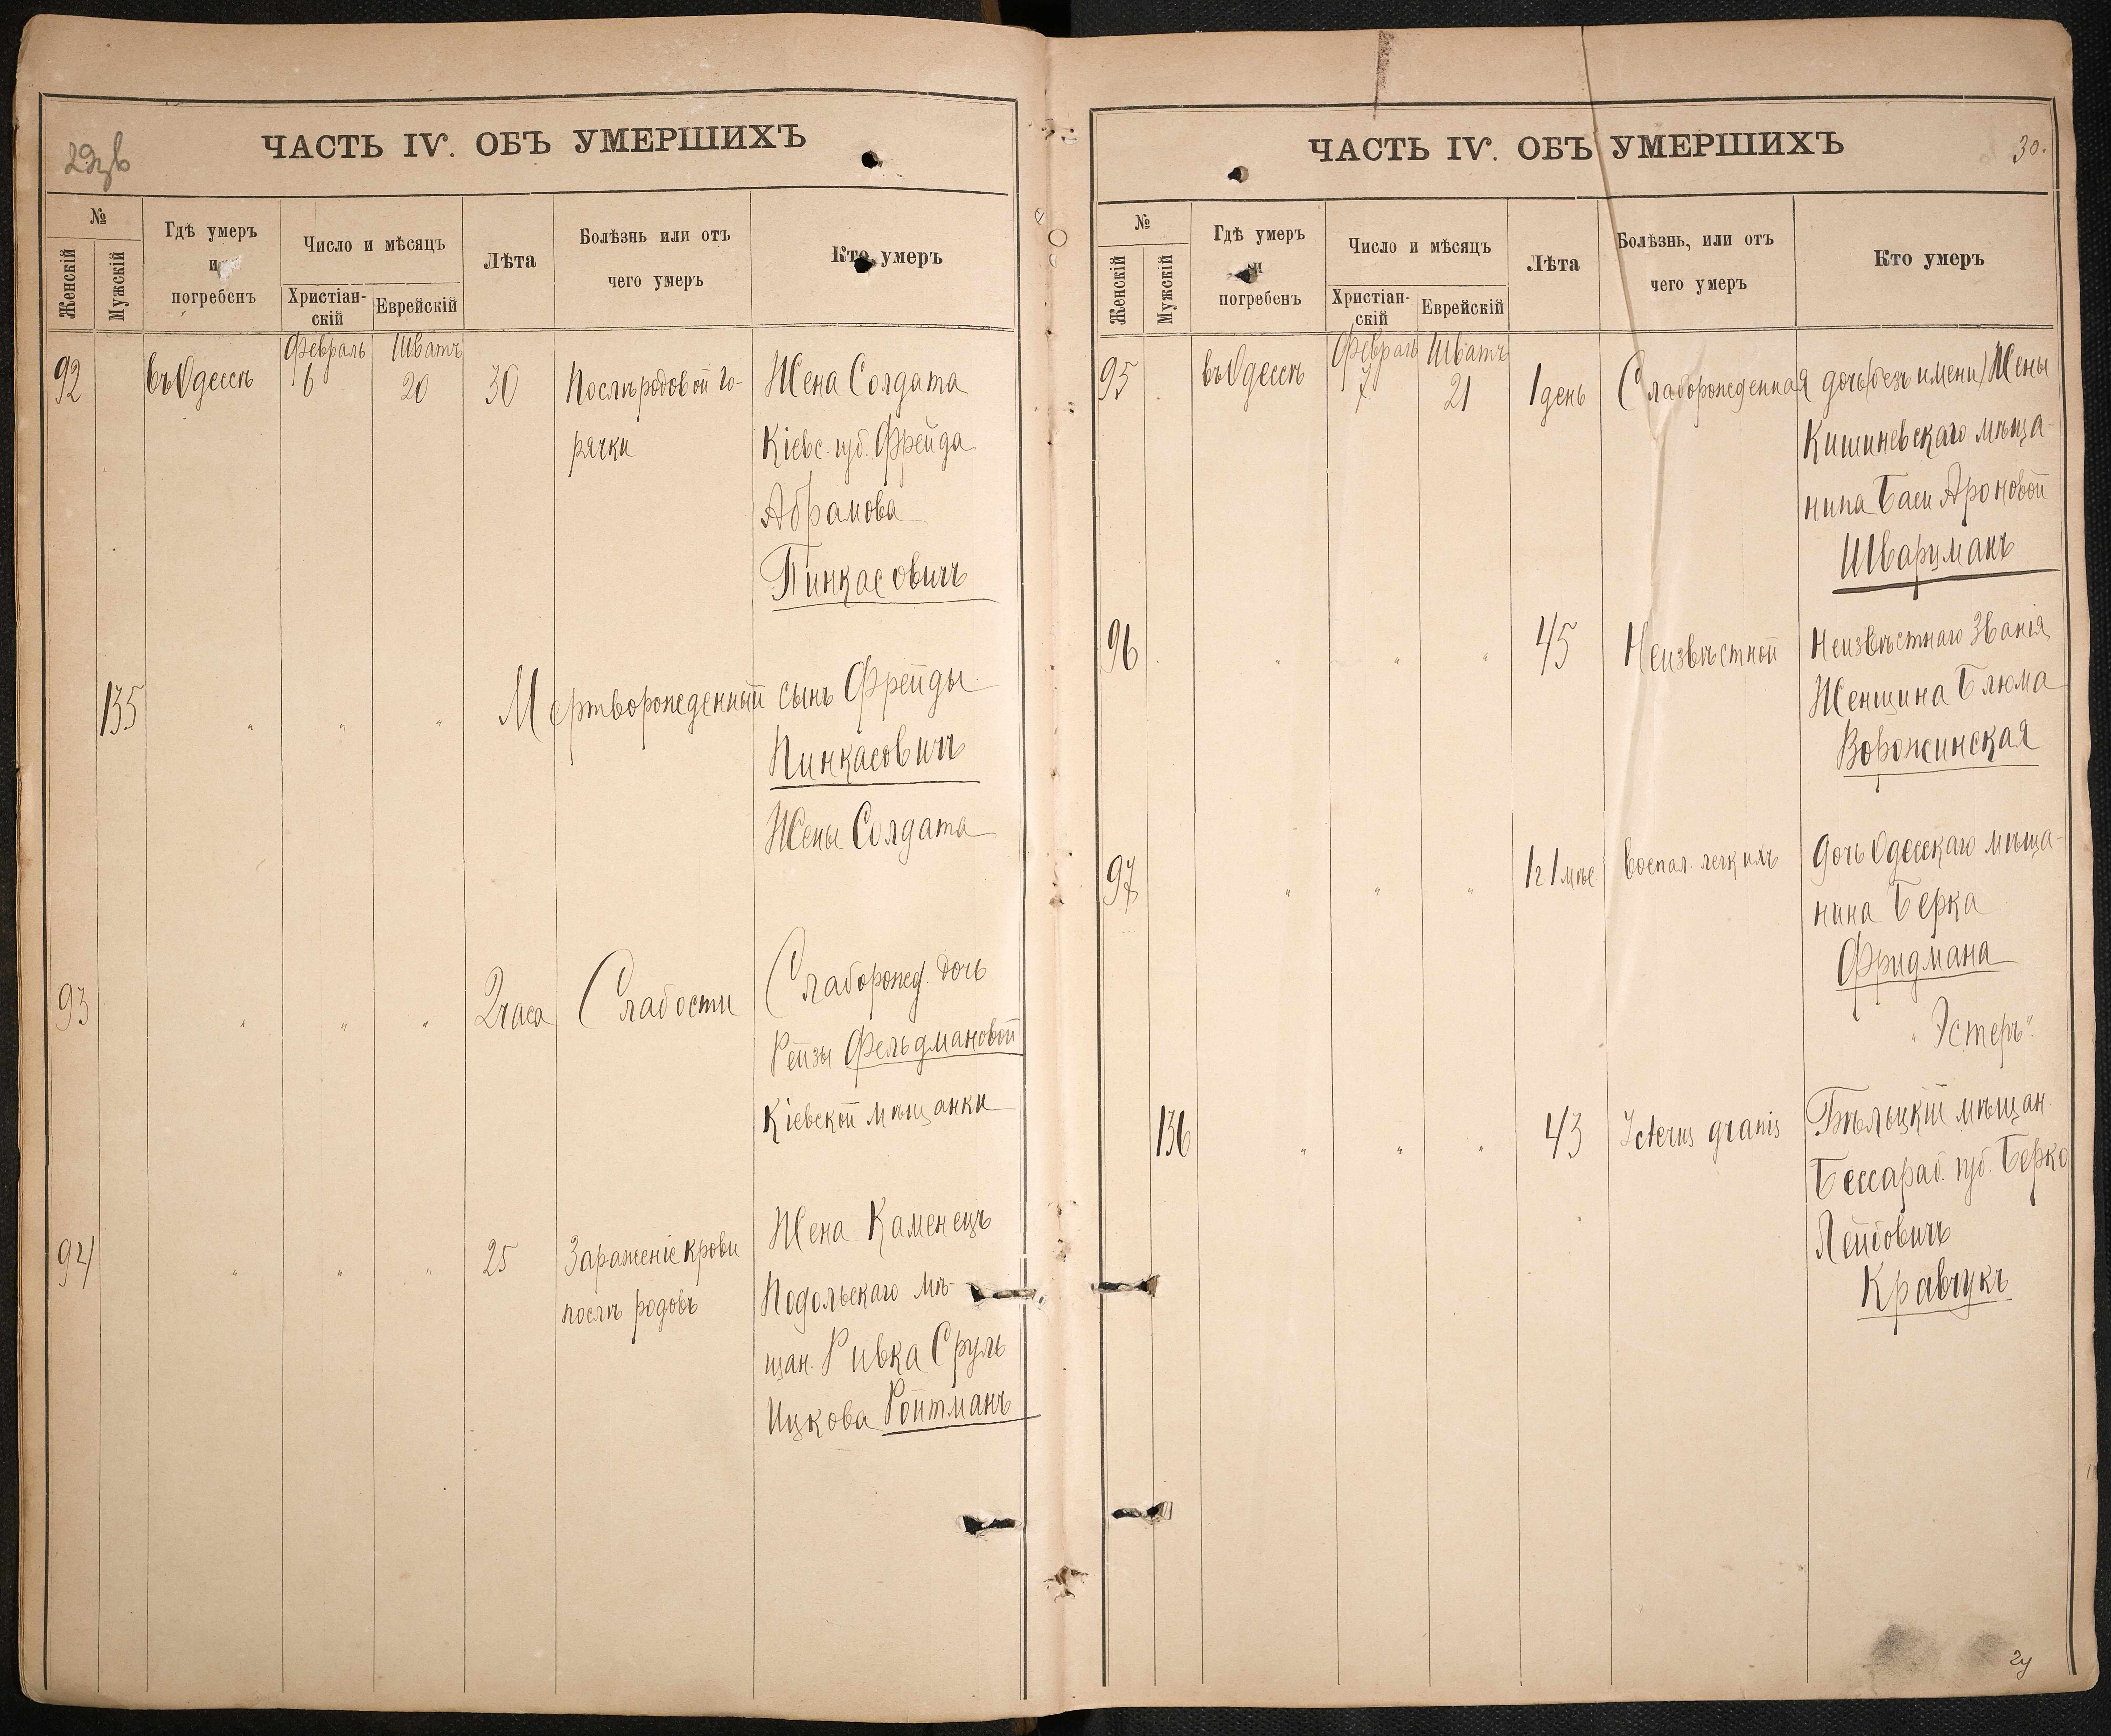 ЧАСТЬ IV. ОБЪ УМЕРШИХЪ
№
Женскій
Мужскій
Гдѣ умеръ
и
погребенъ
Число и мѣсяцъ
Христіан-
скій
Еврейскій
Лѣта
Болѣзнь или отъ
чего умеръ
Кто умеръ
Февраль Шватъ
92 въ Одессѣ 6 20 30 Послѣродовой го- Жена Солдата
рячки Кіевс. губ. Фрейда
Абрамова
Пинкасовичъ
135 " " " Мертворожденный сынъ Фрейды
Пинкасовичъ
Жены Солдата
93 " " " 2 часа Слабости Слаборожд. дочь
Рейзы Фельдмановой
Кіевской мѣщанки
94 " " " 25 Зараженіе крови Жена Каменецъ
послѣ родовъ Подольскаго мѣ-
щан. Ривка Сруль
Ицкова Ройтманъ
ЧАСТЬ IV. ОБЪ УМЕРШИХЪ
30.
№
Женскій
Мужскій
Гдѣ умеръ
и
погребенъ
Число и мѣсяцъ
Христіан-
скій
Еврейскій
Лѣта
Болѣзнь, или отъ
чего умеръ
Кто умеръ
Февраль Шватъ
95 въ Одессѣ 7 21 1 день Слаборожденная дочь (безъ имени) Жены
Кишиневскаго мѣща-
нина Баси Ароновой
Шварцманъ
96 " " " 45 Неизвѣстной Неизвѣстнаго Званія
Женщина Блюма
Ворожинская
97 " " " 1 г 1 мѣс воспал. легкихъ дочь Одесскаго мѣща-
нина Берка
Фридмана
"Эстеръ"
136 " " " 43 Icterus gravis Бѣльцкій мѣщан.
Бессараб. губ. Берко
Лейбовичъ
Кравчукъ